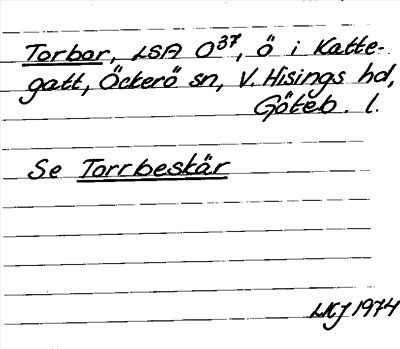 Torbar, LSA O37, ö i Katte-
gatt, Öckerö sn, V. Hisings hd,
Göteb. l.
Se Torrbeskär
LKJ 1974